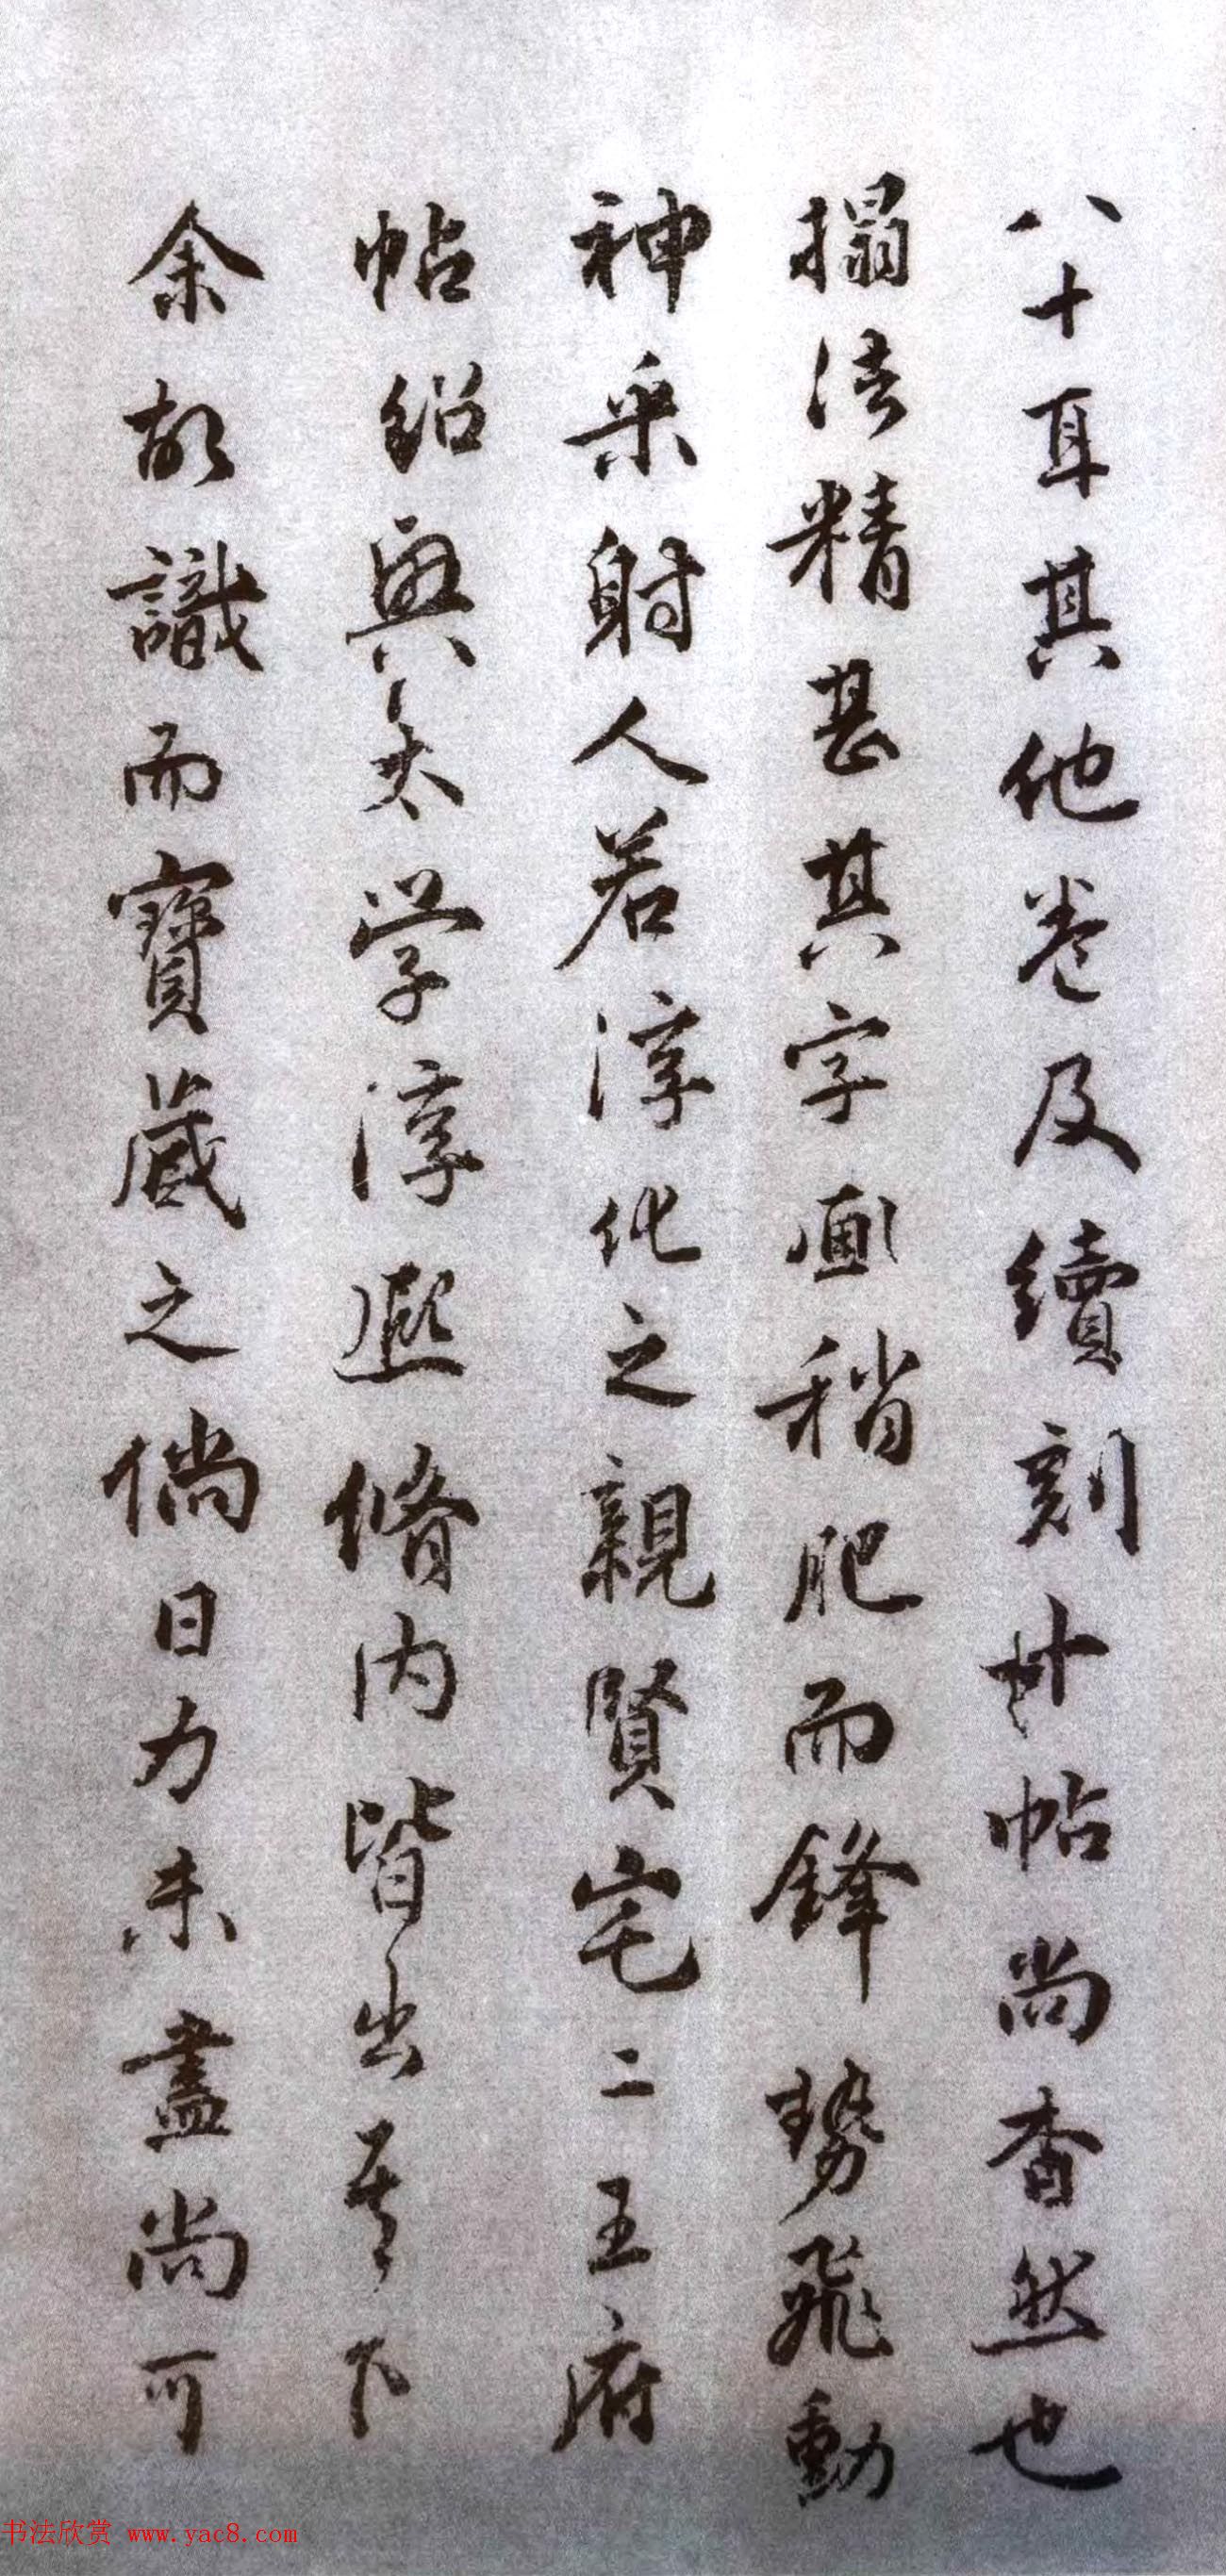 八十耳其他卷及續刻廿帖尚杳然也
搨法精甚其字画稍肥而鋒勢飛動
神采射人若淳化之親賢宅二王府
帖紹興太学淳熙脩内皆出其下
余故識而寶藏之倘日力未盡尚可
书法欣赏 www.yac8.com